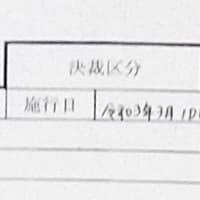 決裁区分
施行日 令和3年3月1日